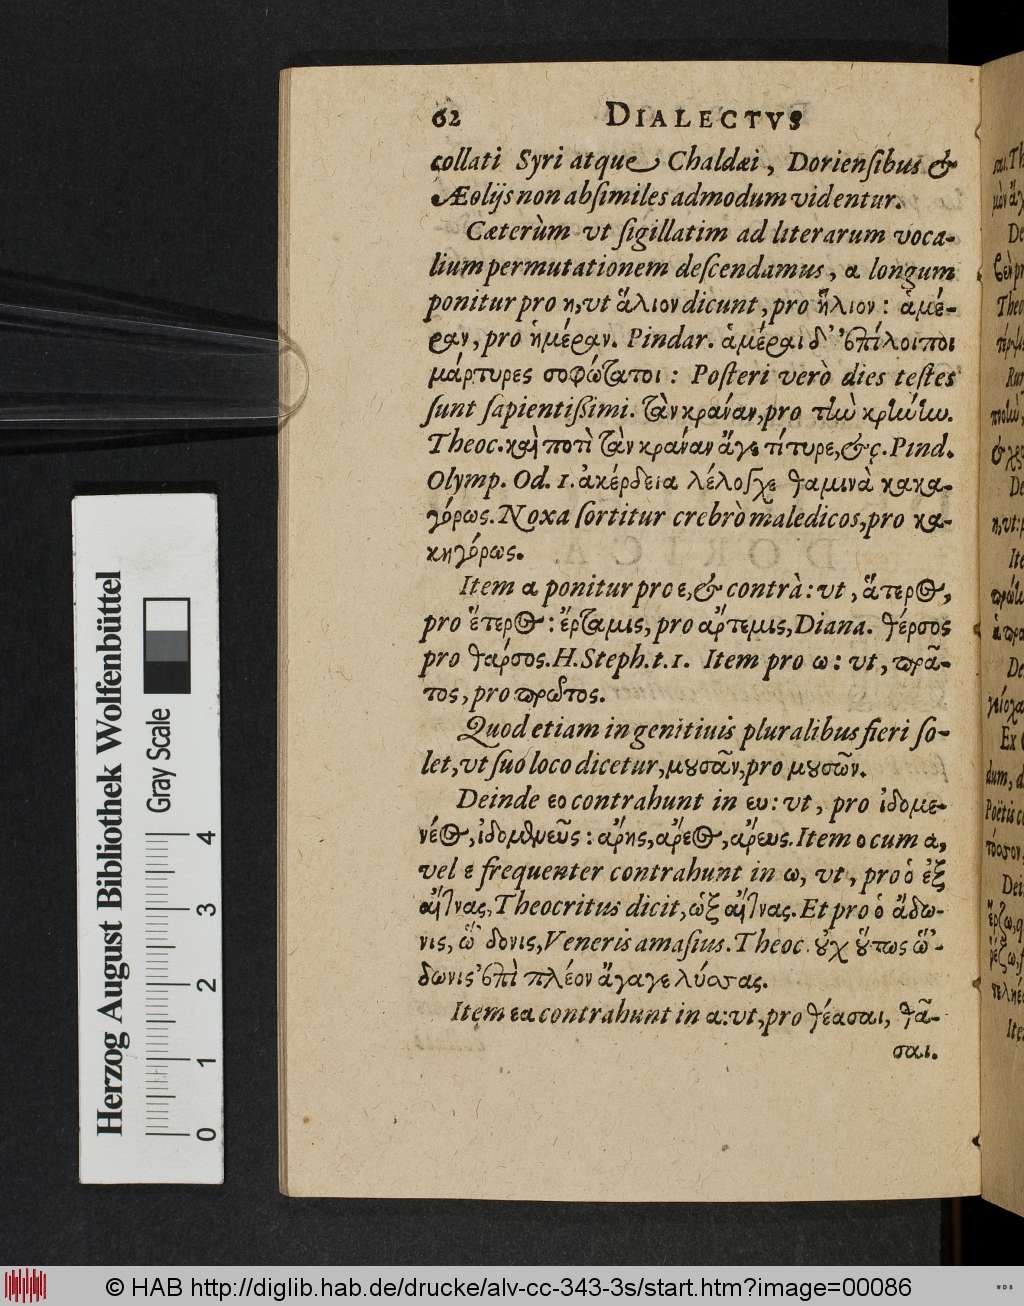 62 DIALECTVS
collati Syri atque Chaldæi, Doriensibus &
Æolijs non absimiles admodum videntur.
Cæterùm vt sigillatim ad literarum voca-
lium permutationem descendamus, α longum
ponitur pro η, vt ἅλιον dicunt, pro ἥλιον: ἁμέ-
ραν, pro ἡμέραν. Pindar. ἁμέραι δ' ἐπίλοιποι
μάρτυρες σοφώτατοι: Posteri verò dies testes
sunt sapientißimi. τὰν κράναν, pro τὴν κρήνην.
Theoc. καὶ ποτὶ τὰν κράναν ἄγε τίτυρε, &c. Pind.
Olymp. Od. 1. ἀκέρδεια λέλογχε θαμινὰ κακα-
γόρως. Noxa sortitur crebrò maledicos, pro κα-
κηγόρως.
Item α ponitur pro ε, & contrà: vt, ἅτερος,
pro ἕτερος: ἔρταμις, pro ἄρτεμις, Diana. θέρσος
pro θάρσος. H. Steph. t. 1. Item pro ω: vt, πρᾶ-
τος, pro πρῶτος.
Quod etiam in genitiuis pluralibus fieri so-
let, vt suo loco dicetur, μουσᾶν, pro μουσῶν.
Deinde εο contrahunt in ευ: vt, pro ἰδομε-
νέος, ἰδομενεῦς: ἄρης, ἄρεος, ἄρευς. Item ο cum α,
vel ε frequenter contrahunt in ω, vt, pro ὁ ἐξ
αἴγνας, Theocritus dicit, ὡξ αἴγνας. Et pro ὁ ἄδω-
νις, ὥ δονις, Veneris amasius. Theoc. οὐχ οὕτως ὥ-
δωνις ἐπὶ πλέον ἄγαγε λύσσας.
Item εα contrahunt in α: vt, pro θέασαι, θᾶ-
σαι.
Herzog August Bibliothek Wolfenbüttel
Gray Scale
0 1 2 3 4
© HAB http://diglib.hab.de/drucke/alv-cc-343-3s/start.htm?image=00086